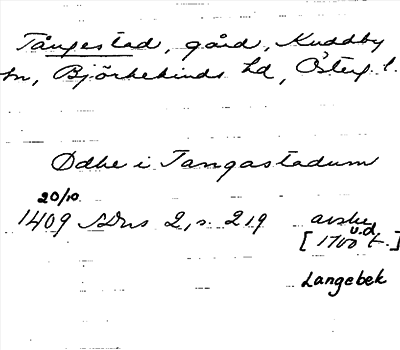 Tångestad, gård, Kuddby
sn, Björkekinds hd, Österg. l.
Ødhe i Tangastadum
20/10.
1409 SDns 2, s. 219 avskr.
u.d.
[1700 t.]
Langebek